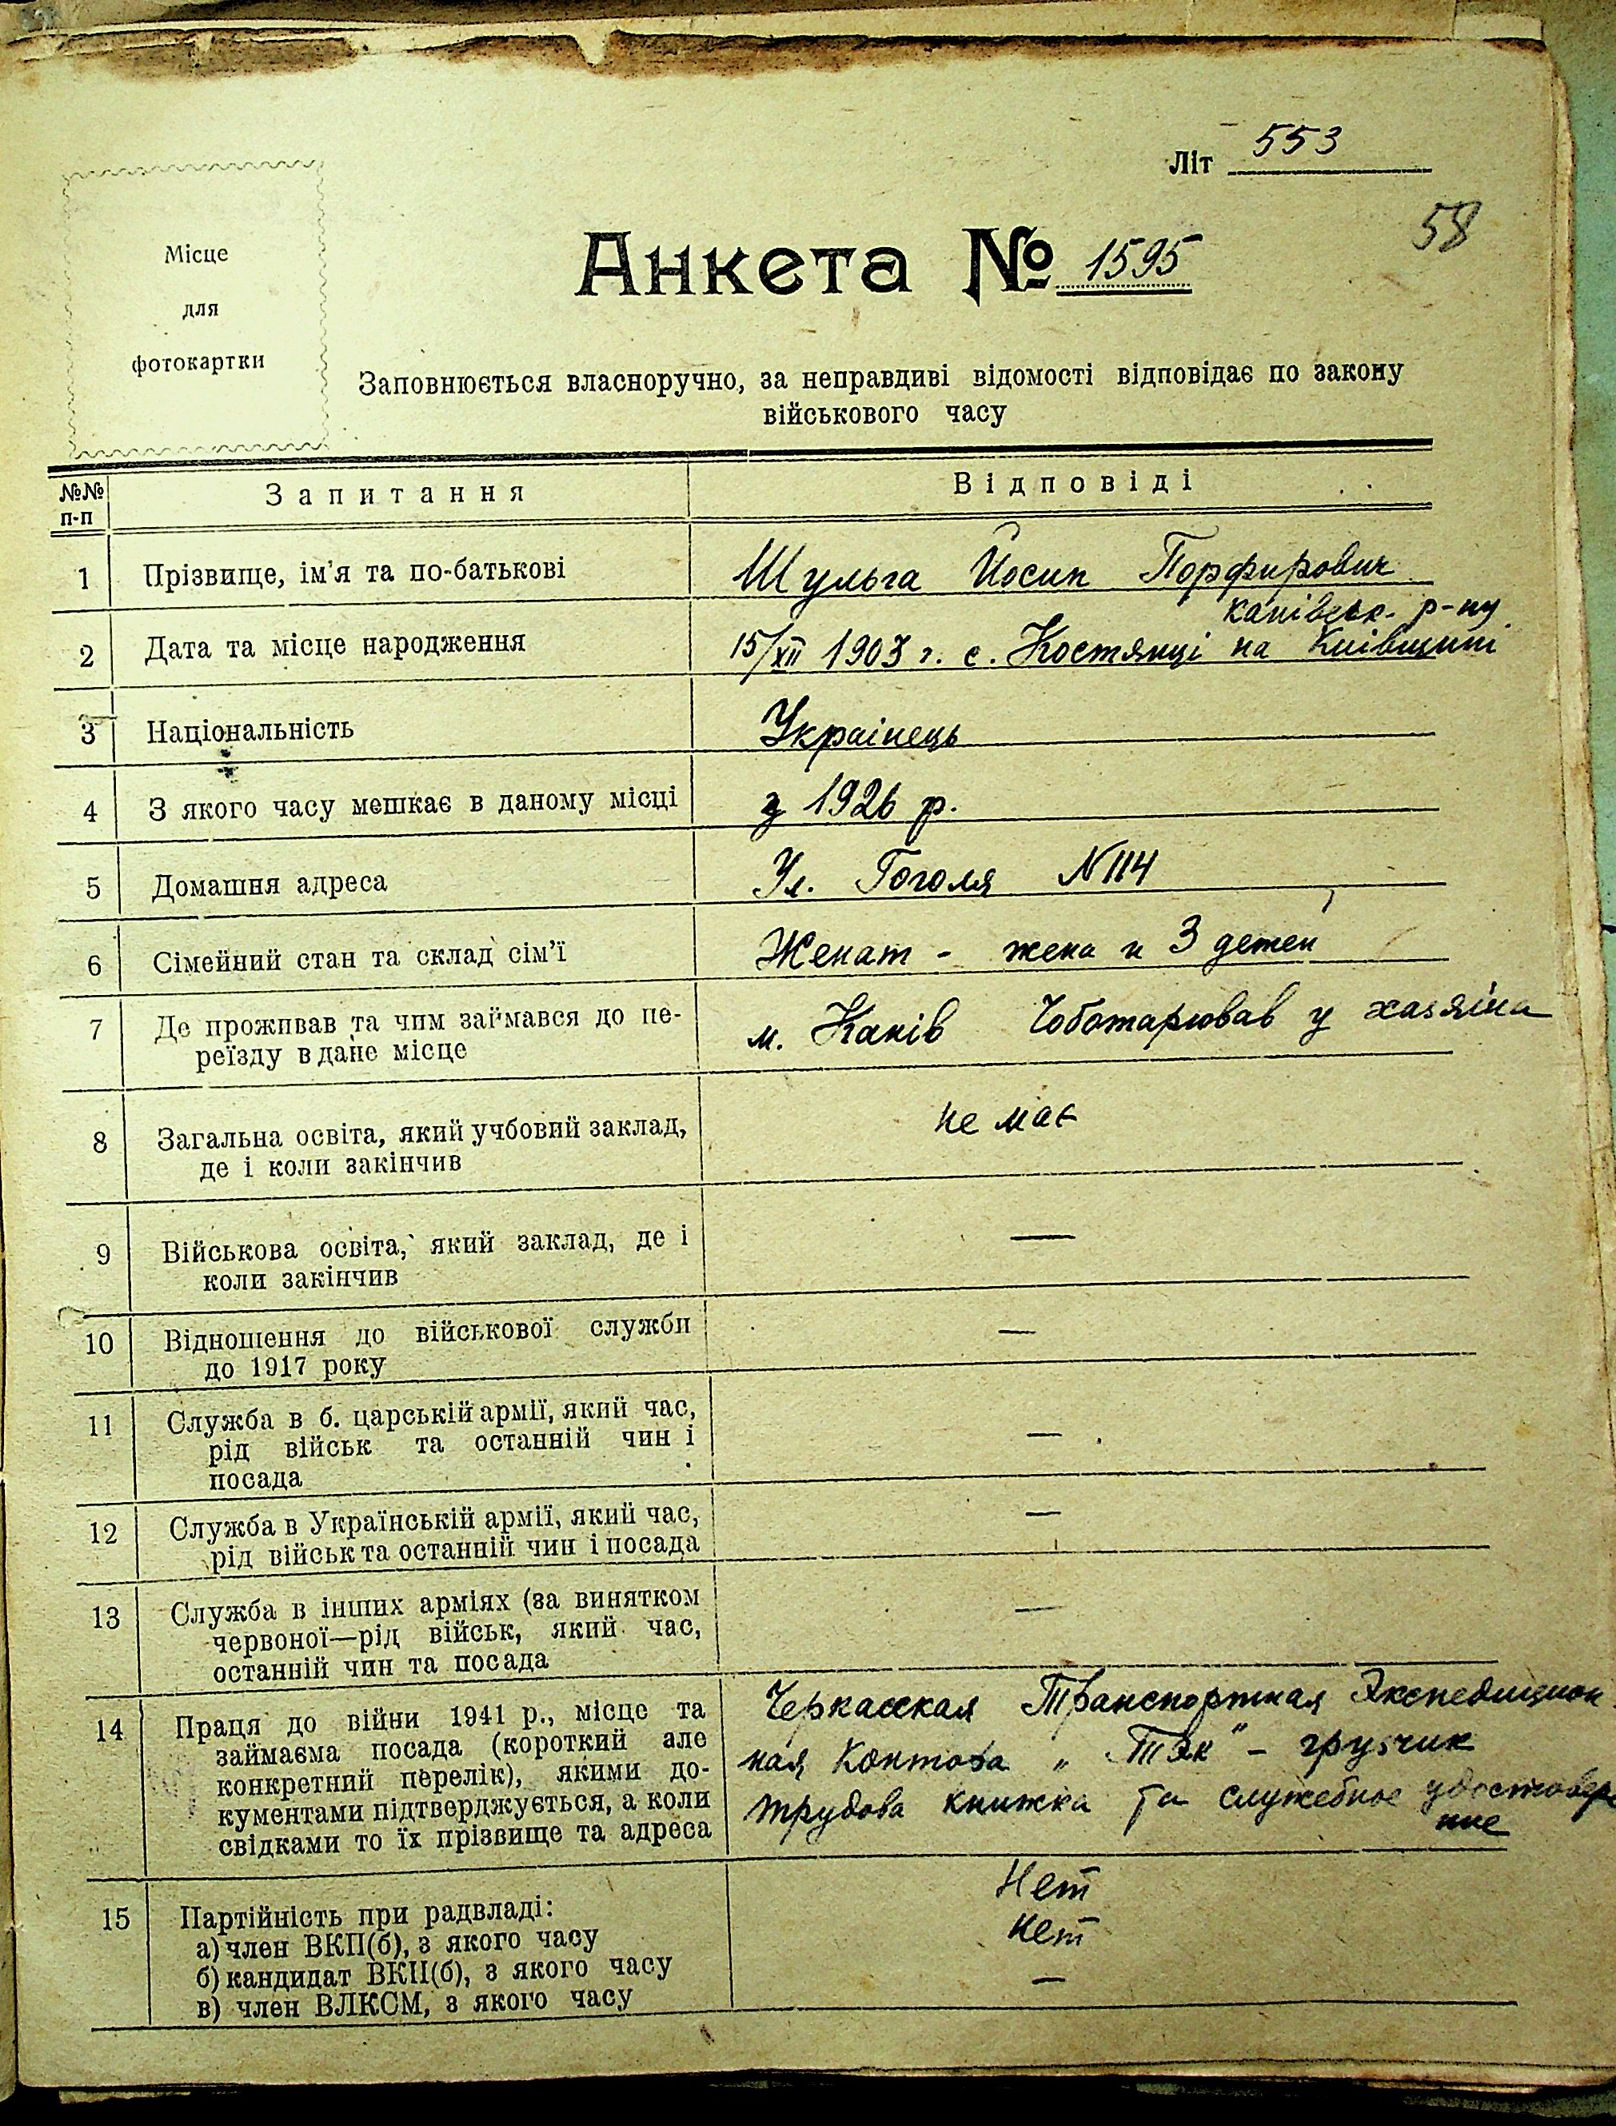 Літ 553
58
Місце
для
фотокартки
Анкета № 1595
Заповнюється власноручно, за неправдиві відомості відповідає по закону
військового часу
№№
п-п
Запитання
Відповіді
1 Прізвище, ім'я та по-батькові Шульга Йосип Порфирович
канівськ. р-ну
2 Дата та місце народження 15/XII 1903 г. с. Костянці на Київщині
3 Національність Українець
4 З якого часу мешкає в даному місці з 1926 р.
5 Домашня адреса Ул. Гоголя N 114
6 Сімейний стан та склад сім'ї Женат - жена и 3 детей
7 Де проживав та чим займався до пе-
реїзду в дане місце м. Канів Чоботарював у хазяіна
8 Загальна освіта, який учбовий заклад,
де і коли закінчив не має
9 Військова освіта, який заклад, де і
коли закінчив —
10 Відношення до військової служби
до 1917 року —
11 Служба в б. царській армії, який час,
рід військ та останній чин і
посада —
12 Служба в Українській армії, який час,
рід військ та останній чин і посада —
13 Служба в інших арміях (за винятком
червоної—рід військ, який час,
останній чин та посада —
14 Праця до війни 1941 р., місце та
займаєма посада (короткий але
конкретний перелік), якими до-
кументами підтверджується, а коли
свідками то їх прізвище та адреса
Черкасская Транспортная Экспедицион
ная Контора „ТЭК" - грузчик
трудова книжка та служебное удостовере
ние
15 Партійність при радвладі:
а) член ВКП(б), з якого часу
б) кандидат ВКП(б), з якого часу
в) член ВЛКСМ, з якого часу
Нет
нет
—